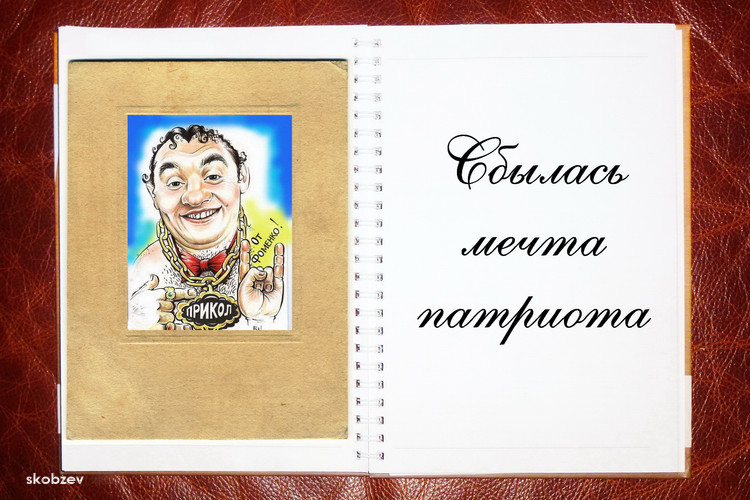 От
Фоменко!
ПРИКОЛ
Сбылась
мечта
патриота
skobzev